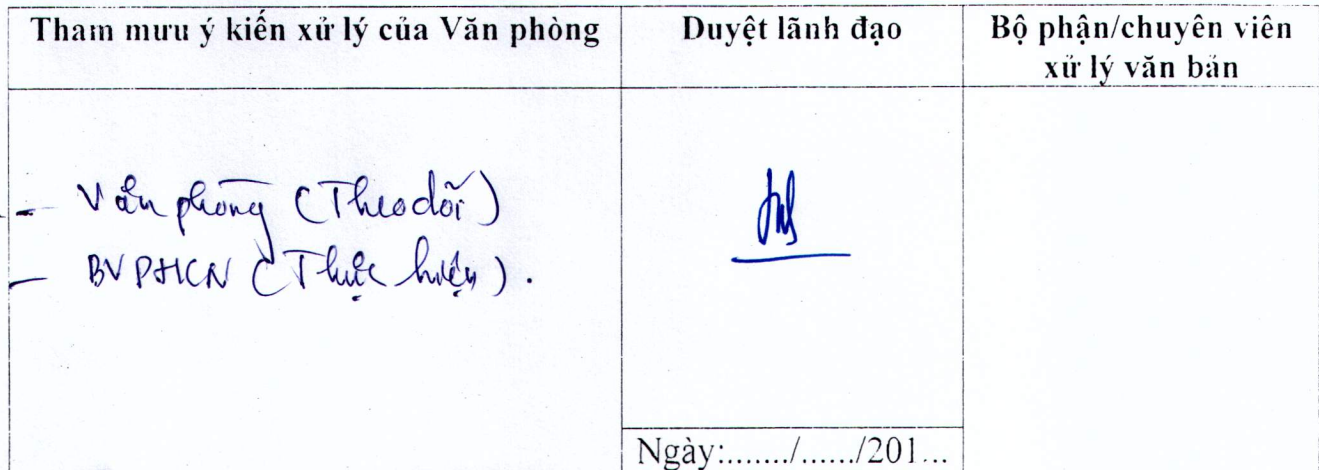 Tham mưu ý kiến xử lý của Văn phòng
Duyệt lãnh đạo
Bộ phận/chuyên viên
xử lý văn bản
- Văn phòng (Theo dõi)
- BVPHCN (Thực hiện).
Ngày:......./......./201...